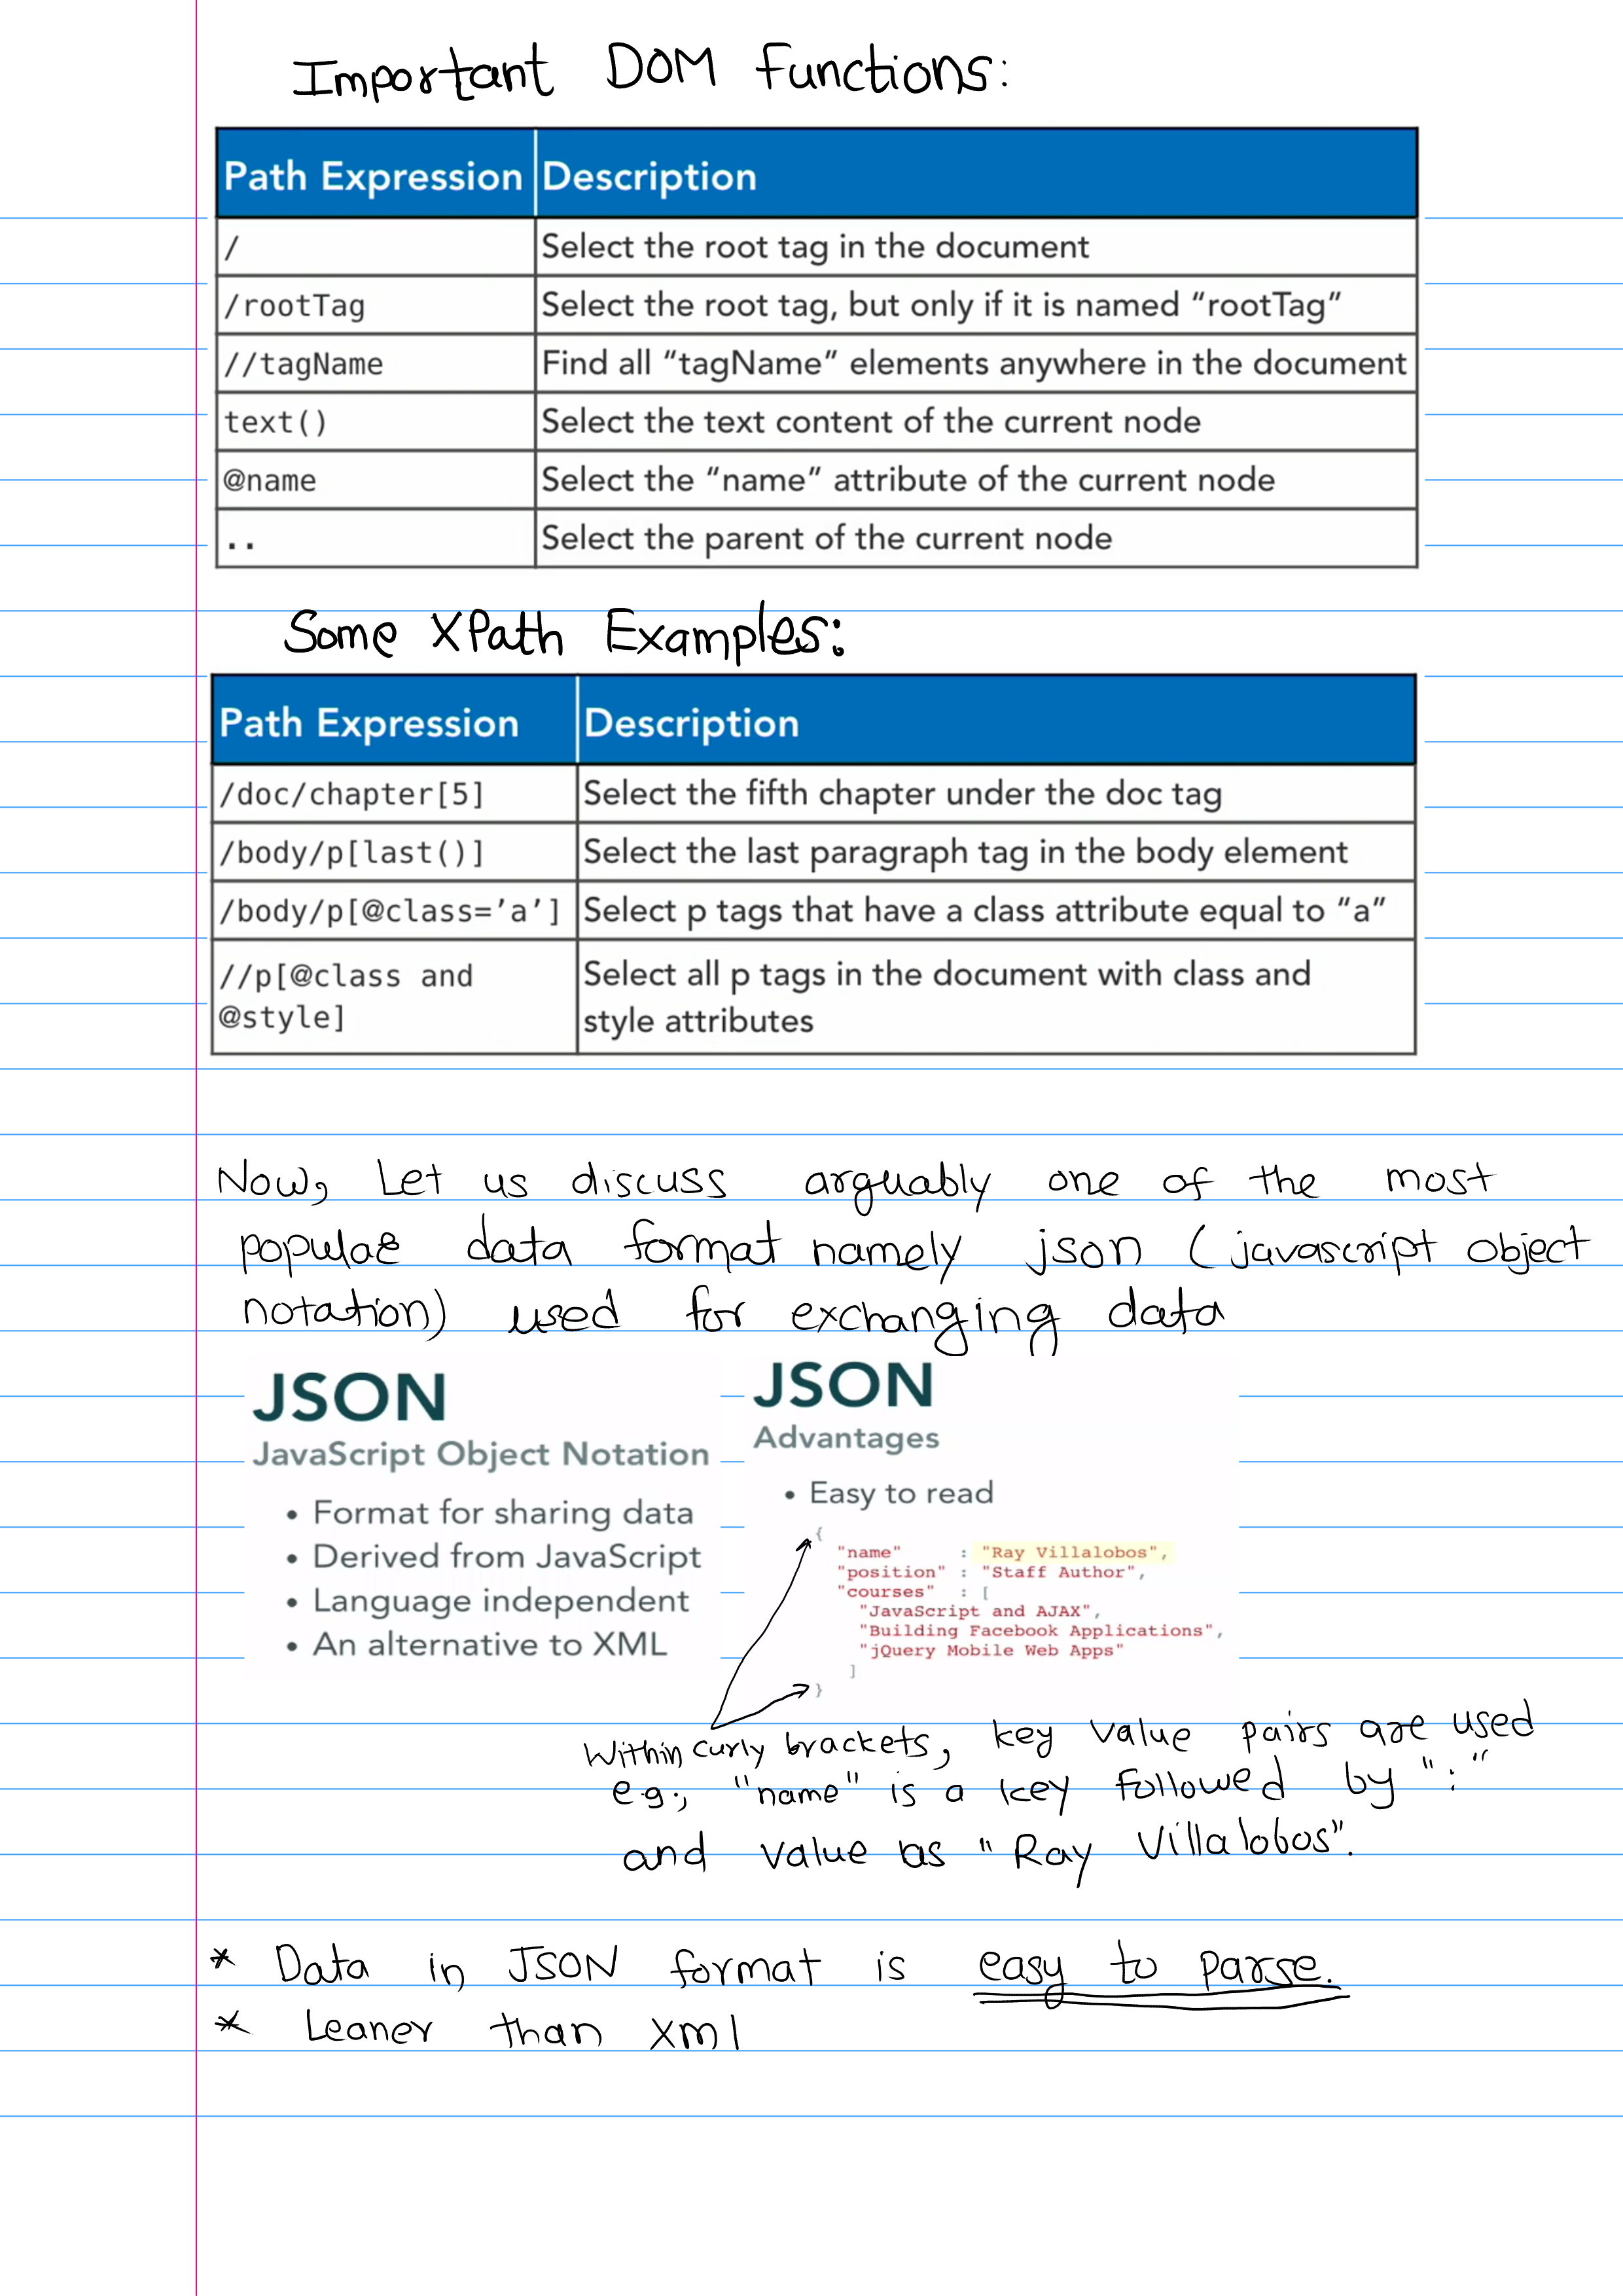 Important DOM Functions:
Path Expression Description
/ Select the root tag in the document
/rootTag Select the root tag, but only if it is named “rootTag”
//tagName Find all “tagName” elements anywhere in the document
text() Select the text content of the current node
@name Select the “name” attribute of the current node
.. Select the parent of the current node
Some XPath Examples:
Path Expression Description
/doc/chapter[5] Select the fifth chapter under the doc tag
/body/p[last()] Select the last paragraph tag in the body element
/body/p[@class=’a’] Select p tags that have a class attribute equal to “a”
//p[@class and
@style]
Select all p tags in the document with class and
style attributes
Now, Let us discuss arguably one of the most
popular data format namely json (javascript object
notation) used for exchanging data
JSON
JavaScript Object Notation
• Format for sharing data
• Derived from JavaScript
• Language independent
• An alternative to XML
JSON
Advantages
• Easy to read
{
"name" : "Ray Villalobos",
"position" : "Staff Author",
"courses" : [
"JavaScript and AJAX",
"Building Facebook Applications",
"jQuery Mobile Web Apps"
]
}
Within curly brackets, key value pairs are used
e.g., "name" is a key followed by ":"
and value as "Ray Villalobos".
* Data in JSON format is easy to parse.
* Leaner than xml